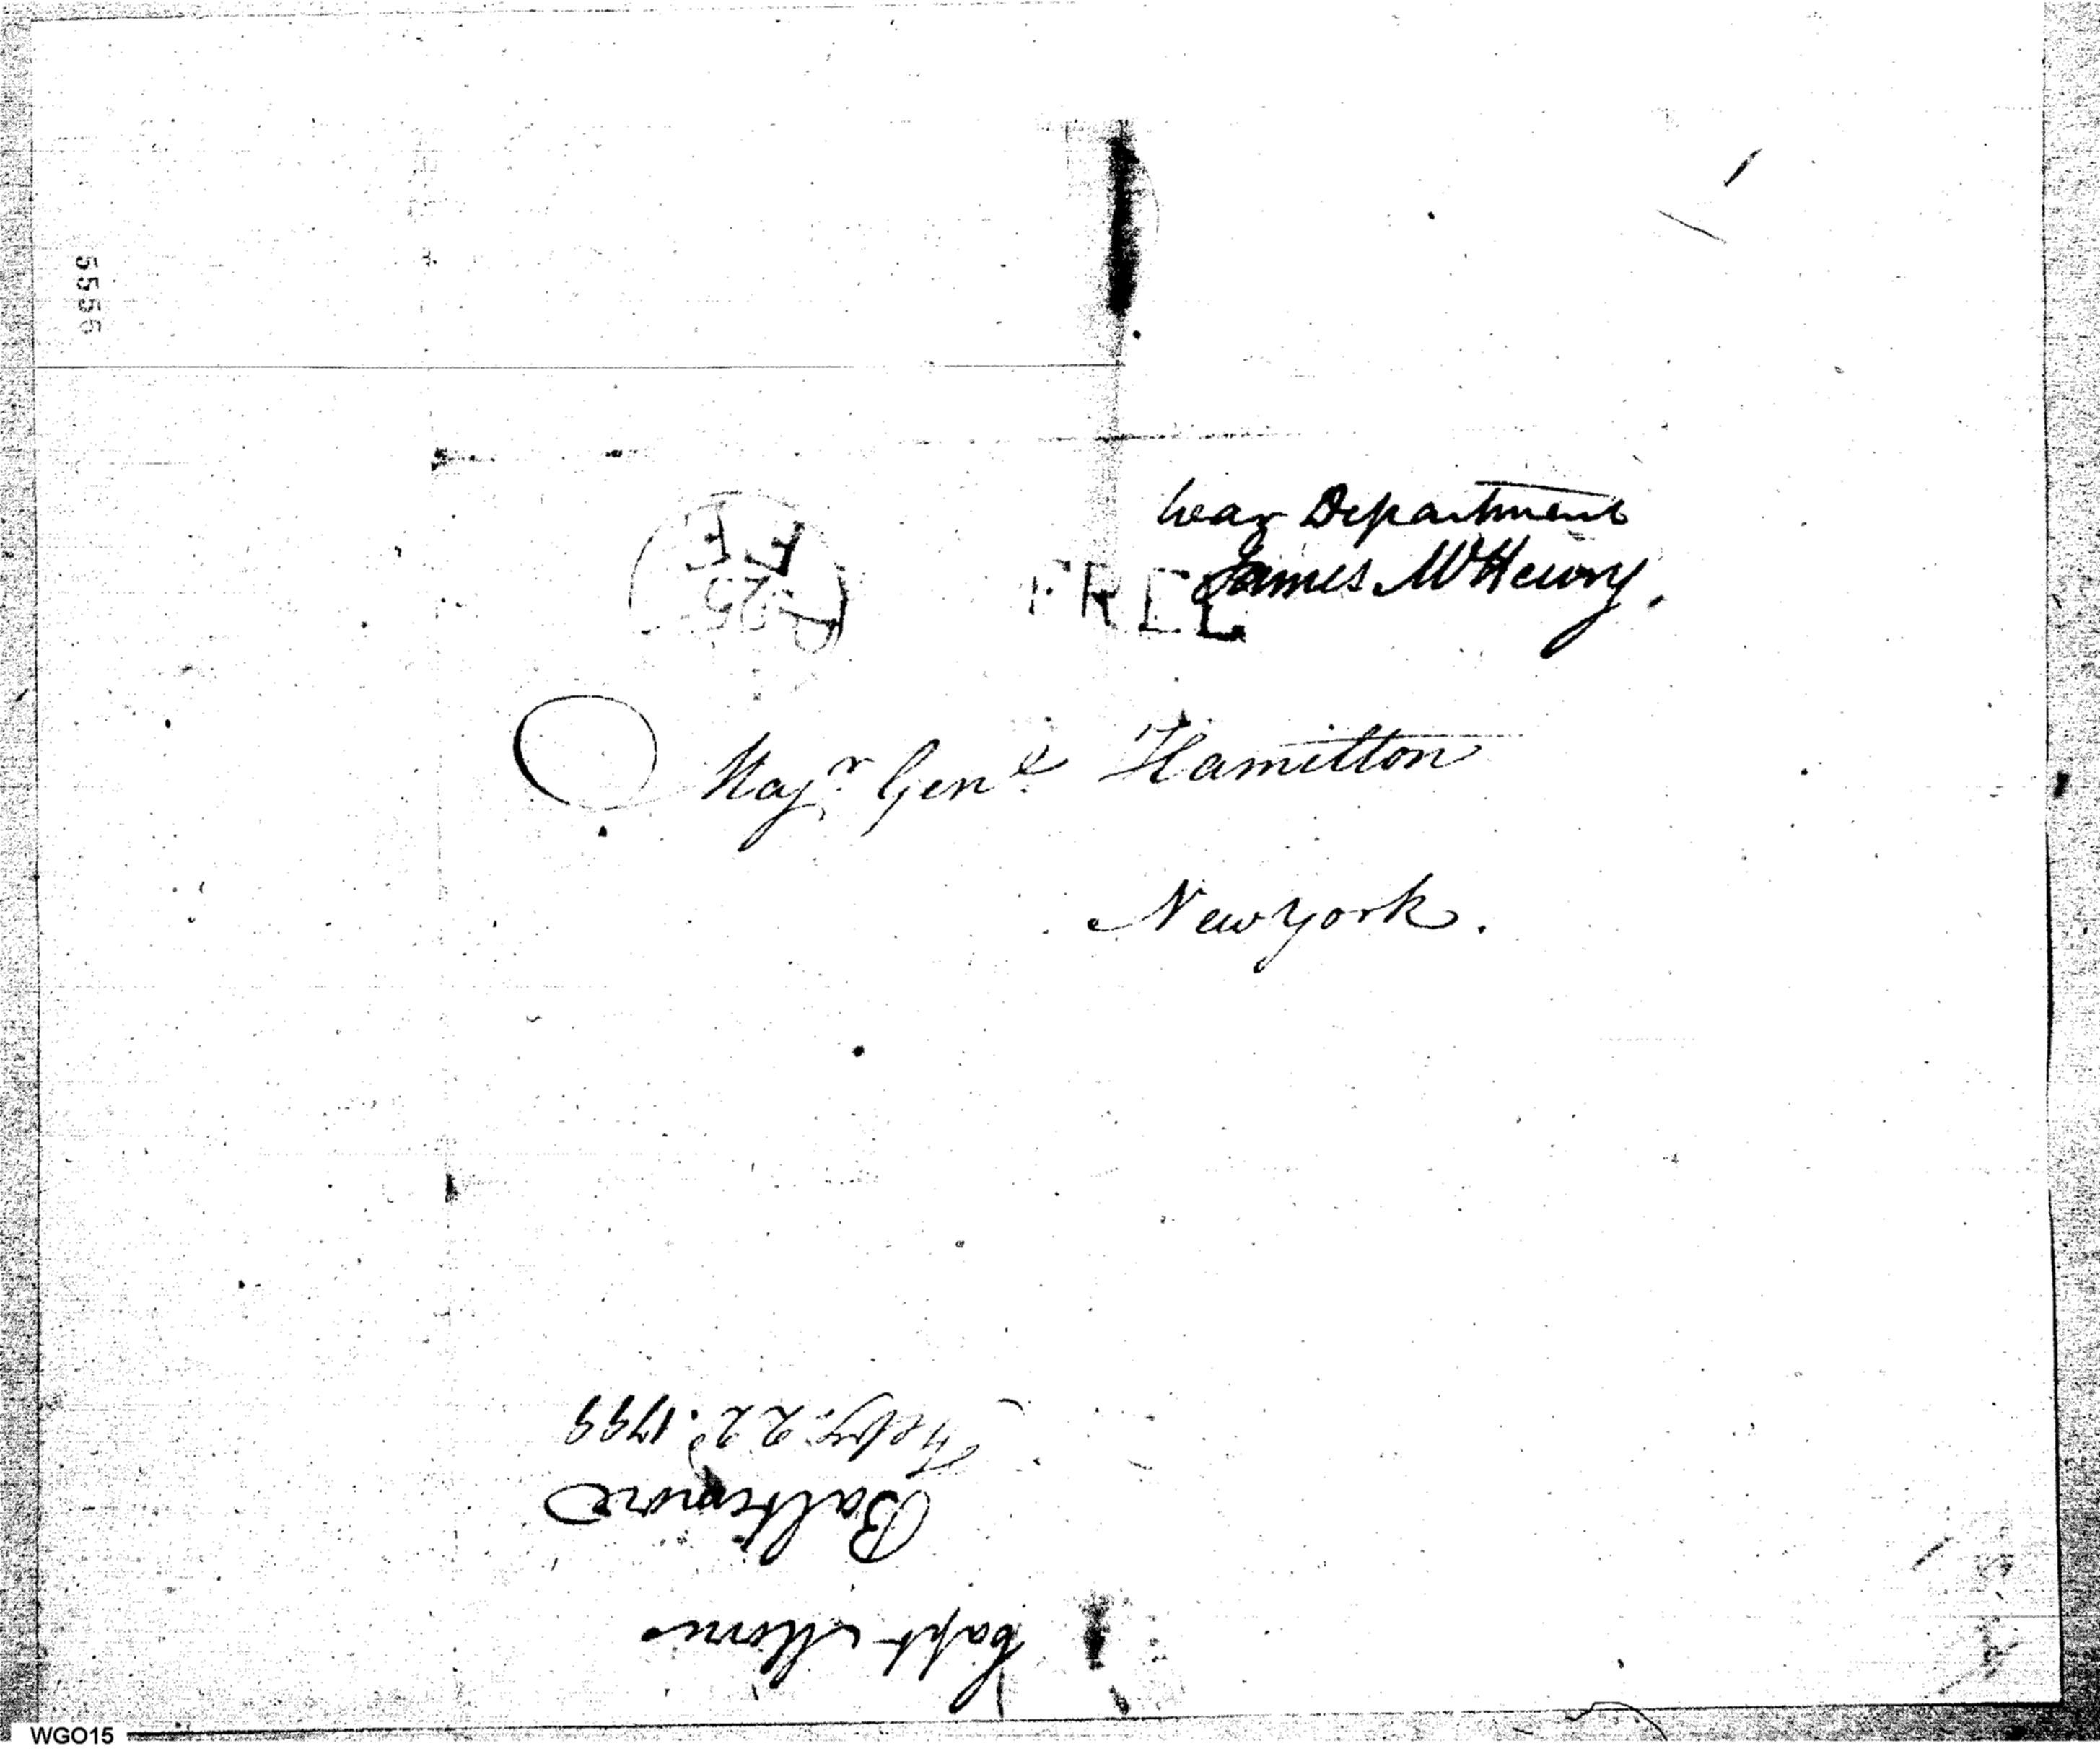 5556
War Department
James McHenry.
FREE
FE
25
Majr. Genl. Hamilton
New York.
Capt Morris
Baltimore
Feby. 22d. 1799
WGO15